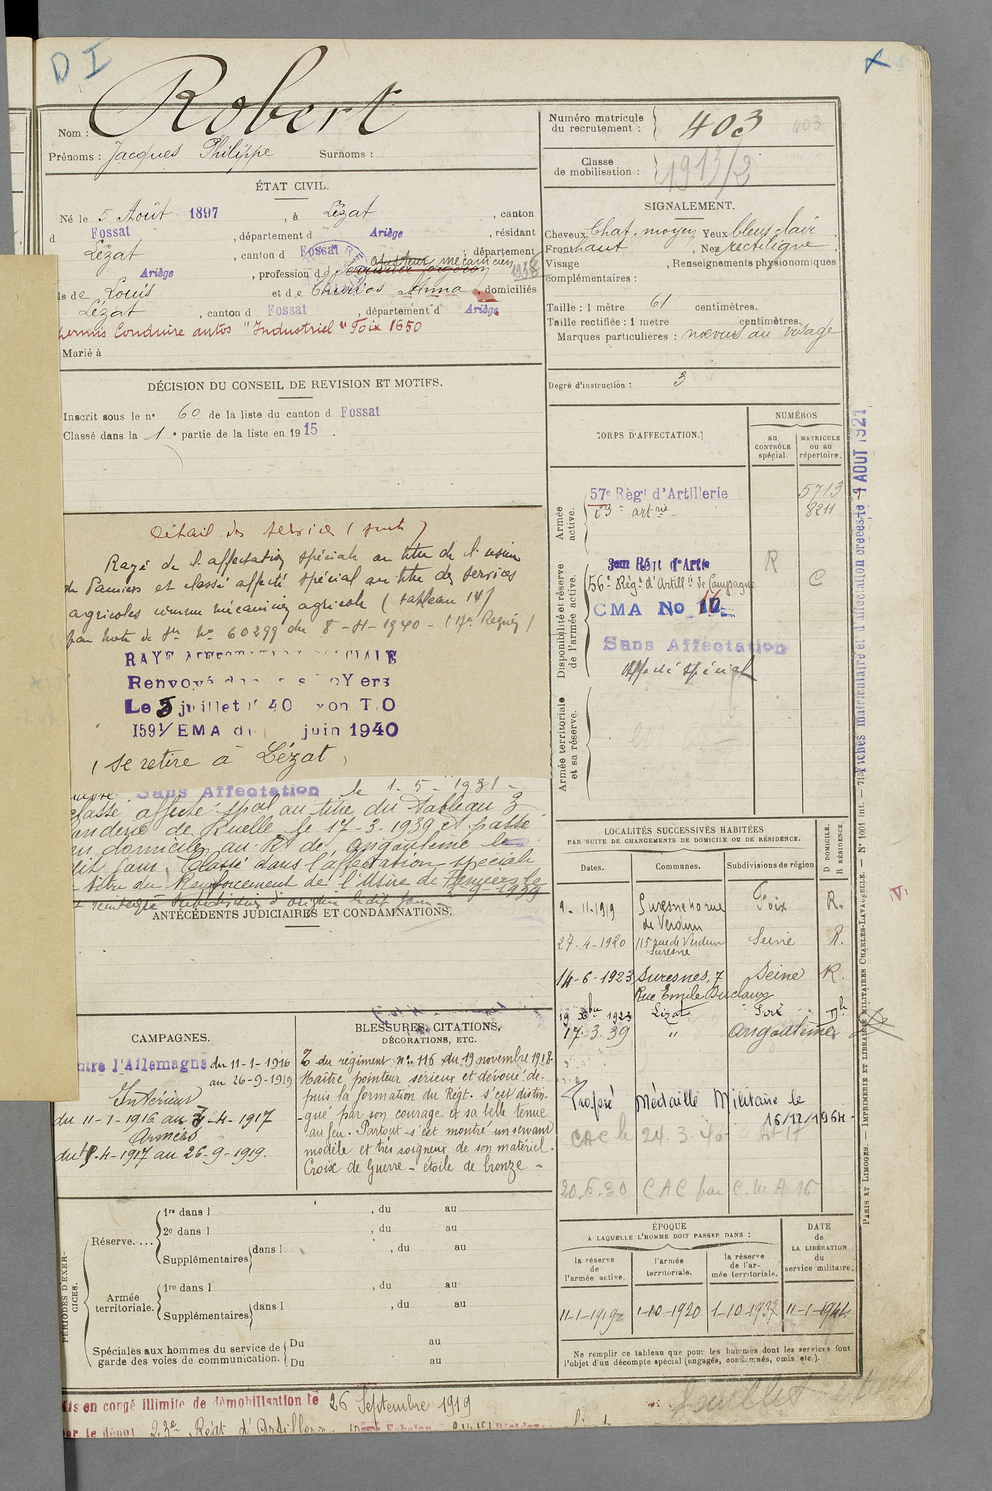 D I
Robert
Nom :
Prénoms : Jacques Philippe Surnoms :
Numéro matricule
du recrutement : 403 403
Classe
de mobilisation : 1913/2
ÉTAT CIVIL.
Né le 5 Août 1897, à Lézat, canton
d Fossat, département d Ariège, résidant
Lézat, canton d Fossat, département
Ariège, profession d ajusteur mécanicien 1938
ls de Louis et de Anna, domiciliés
Lézat, canton d Fossat, département d Ariège
permis Conduire autos "Industriel" Foix 1650
Marié à
SIGNALEMENT.
Cheveux Chat. moyen Yeux bleu clair
Front haut, Nez rectiligne
Visage, Renseignements physionomiques
complémentaires :
Taille : 1 mètre 61 centimètres.
Taille rectifiée : 1 mètre centimètres.
Marques particulières : nœvus au visage
Degré d'instruction : 3
DÉCISION DU CONSEIL DE REVISION ET MOTIFS.
Inscrit sous le n° 60 de la liste du canton d Fossat
Classé dans la 1e partie de la liste en 1915.
CORPS D'AFFECTATION.
NUMÉROS
au
CONTRÔLE
spécial.
MATRICULE
ou au
répertoire.
Armée
active.
57e Régt d'Artillerie 5713
23e artrie 8211
Disponibilité et réserve
de l'armée active.
Régt d'Artie R
56e Régt d'Artillie de Campagne C
CMA No 16
Sans Affectation
Affecté spécial
Armée territoriale
et sa réserve.
Détail des services (suite)
Rayé de l'affectation spéciale au titre de l'usine
de Pamiers et classé affecté spécial au titre des services
agricoles comme mécanicien agricole (tableau 14)
par note de Sce No 60299 du 8-11-1940 - (17e Région)
RAYE AFFECTATION SPECIALE
Renvoyé dans ses foyers
Le 5 juillet 40
159 1/EMA du juin 1940
se retire à Lézat,
Sans Affectation le 1-5-1931-
classé affecté spal au titre du Tableau 3
fonderie de Ruelle le 17-3-1939 et passé
en domicile au Rt de Angoulême le
dit jour. Classé dans l'affectation spéciale
titre du Renforcement de l'Usine de Pamiers le
2-9-1939
ANTÉCÉDENTS JUDICIAIRES ET CONDAMNATIONS.
LOCALITÉS SUCCESSIVES HABITÉES
PAR SUITE DE CHANGEMENTS DE DOMICILE OU DE RÉSIDENCE.
Dates. Communes. Subdivisions de région
D DOMICILE.
R RÉSIDENCE.
9-11-1919 Suresnes rue Foix R.
de Verdun
27-4-1920 115 rue de Verdun Seine R.
Suresne
14-6-1923 Suresnes, 7 Seine R.
Rue Emile Duclaux
19 Xbre 1923 Lézat Foix
17-3-39 " Angoulême
Proposé Médaille Militaire le
16/12/1964
CAC le 24.3.40
20.6.30 CAC par C.M.A 16
CAMPAGNES.
ntre l'Allemagne du 11-1-1916
au 26-9-1919
Intérieur
du 11-1-1916 au 7-4-1917
Armées
du 8-4-1917 au 26-9-1919.
BLESSURES, CITATIONS,
DÉCORATIONS, ETC.
O du régiment n° 116 du 19 novembre 1918-
Maître pointeur sérieux et dévoué de-
puis la formation du Régt. s'est distin-
gué par son courage et sa belle tenue
au feu. Partout s'est montré un servant
modèle et très soigneux de son matériel.
Croix de Guerre - étoile de bronze -
PÉRIODES D'EXER-
CICES.
Réserve....
1re dans l , du au
2e dans l , du au
Supplémentaires dans l , du au
Armée
territoriale.
1re dans l , du au
Supplémentaires dans l , du au
Spéciales aux hommes du service de
garde des voies de communication.
Du au
Du au
ÉPOQUE
A LAQUELLE L'HOMME DOIT PASSER DANS :
DATE
de
LA LIBÉRATION
du
service militaire.
la réserve
de
l'armée active.
l'armée
territoriale.
la réserve
de l'ar-
mée territoriale.
11-1-1919 1-10-1920 1-10-1937 11-1-1944
Ne remplir ce tableau que pour les hommes dont les services font
l'objet d'un décompte spécial (engagés, condamnés, omis, etc.).
is en congé illimité de démobilisation le 26 Septembre 1919
ar le dépôt 23e Régt d'Artillerie
PARIS ET LIMOGES. — IMPRIMERIE ET LIBRAIRIE MILITAIRES CHARLES-LAVAUZELLE. — N° 1001 int. — 715
Fiches matriculaire et d'affectation créées le 4 AOUT 1921